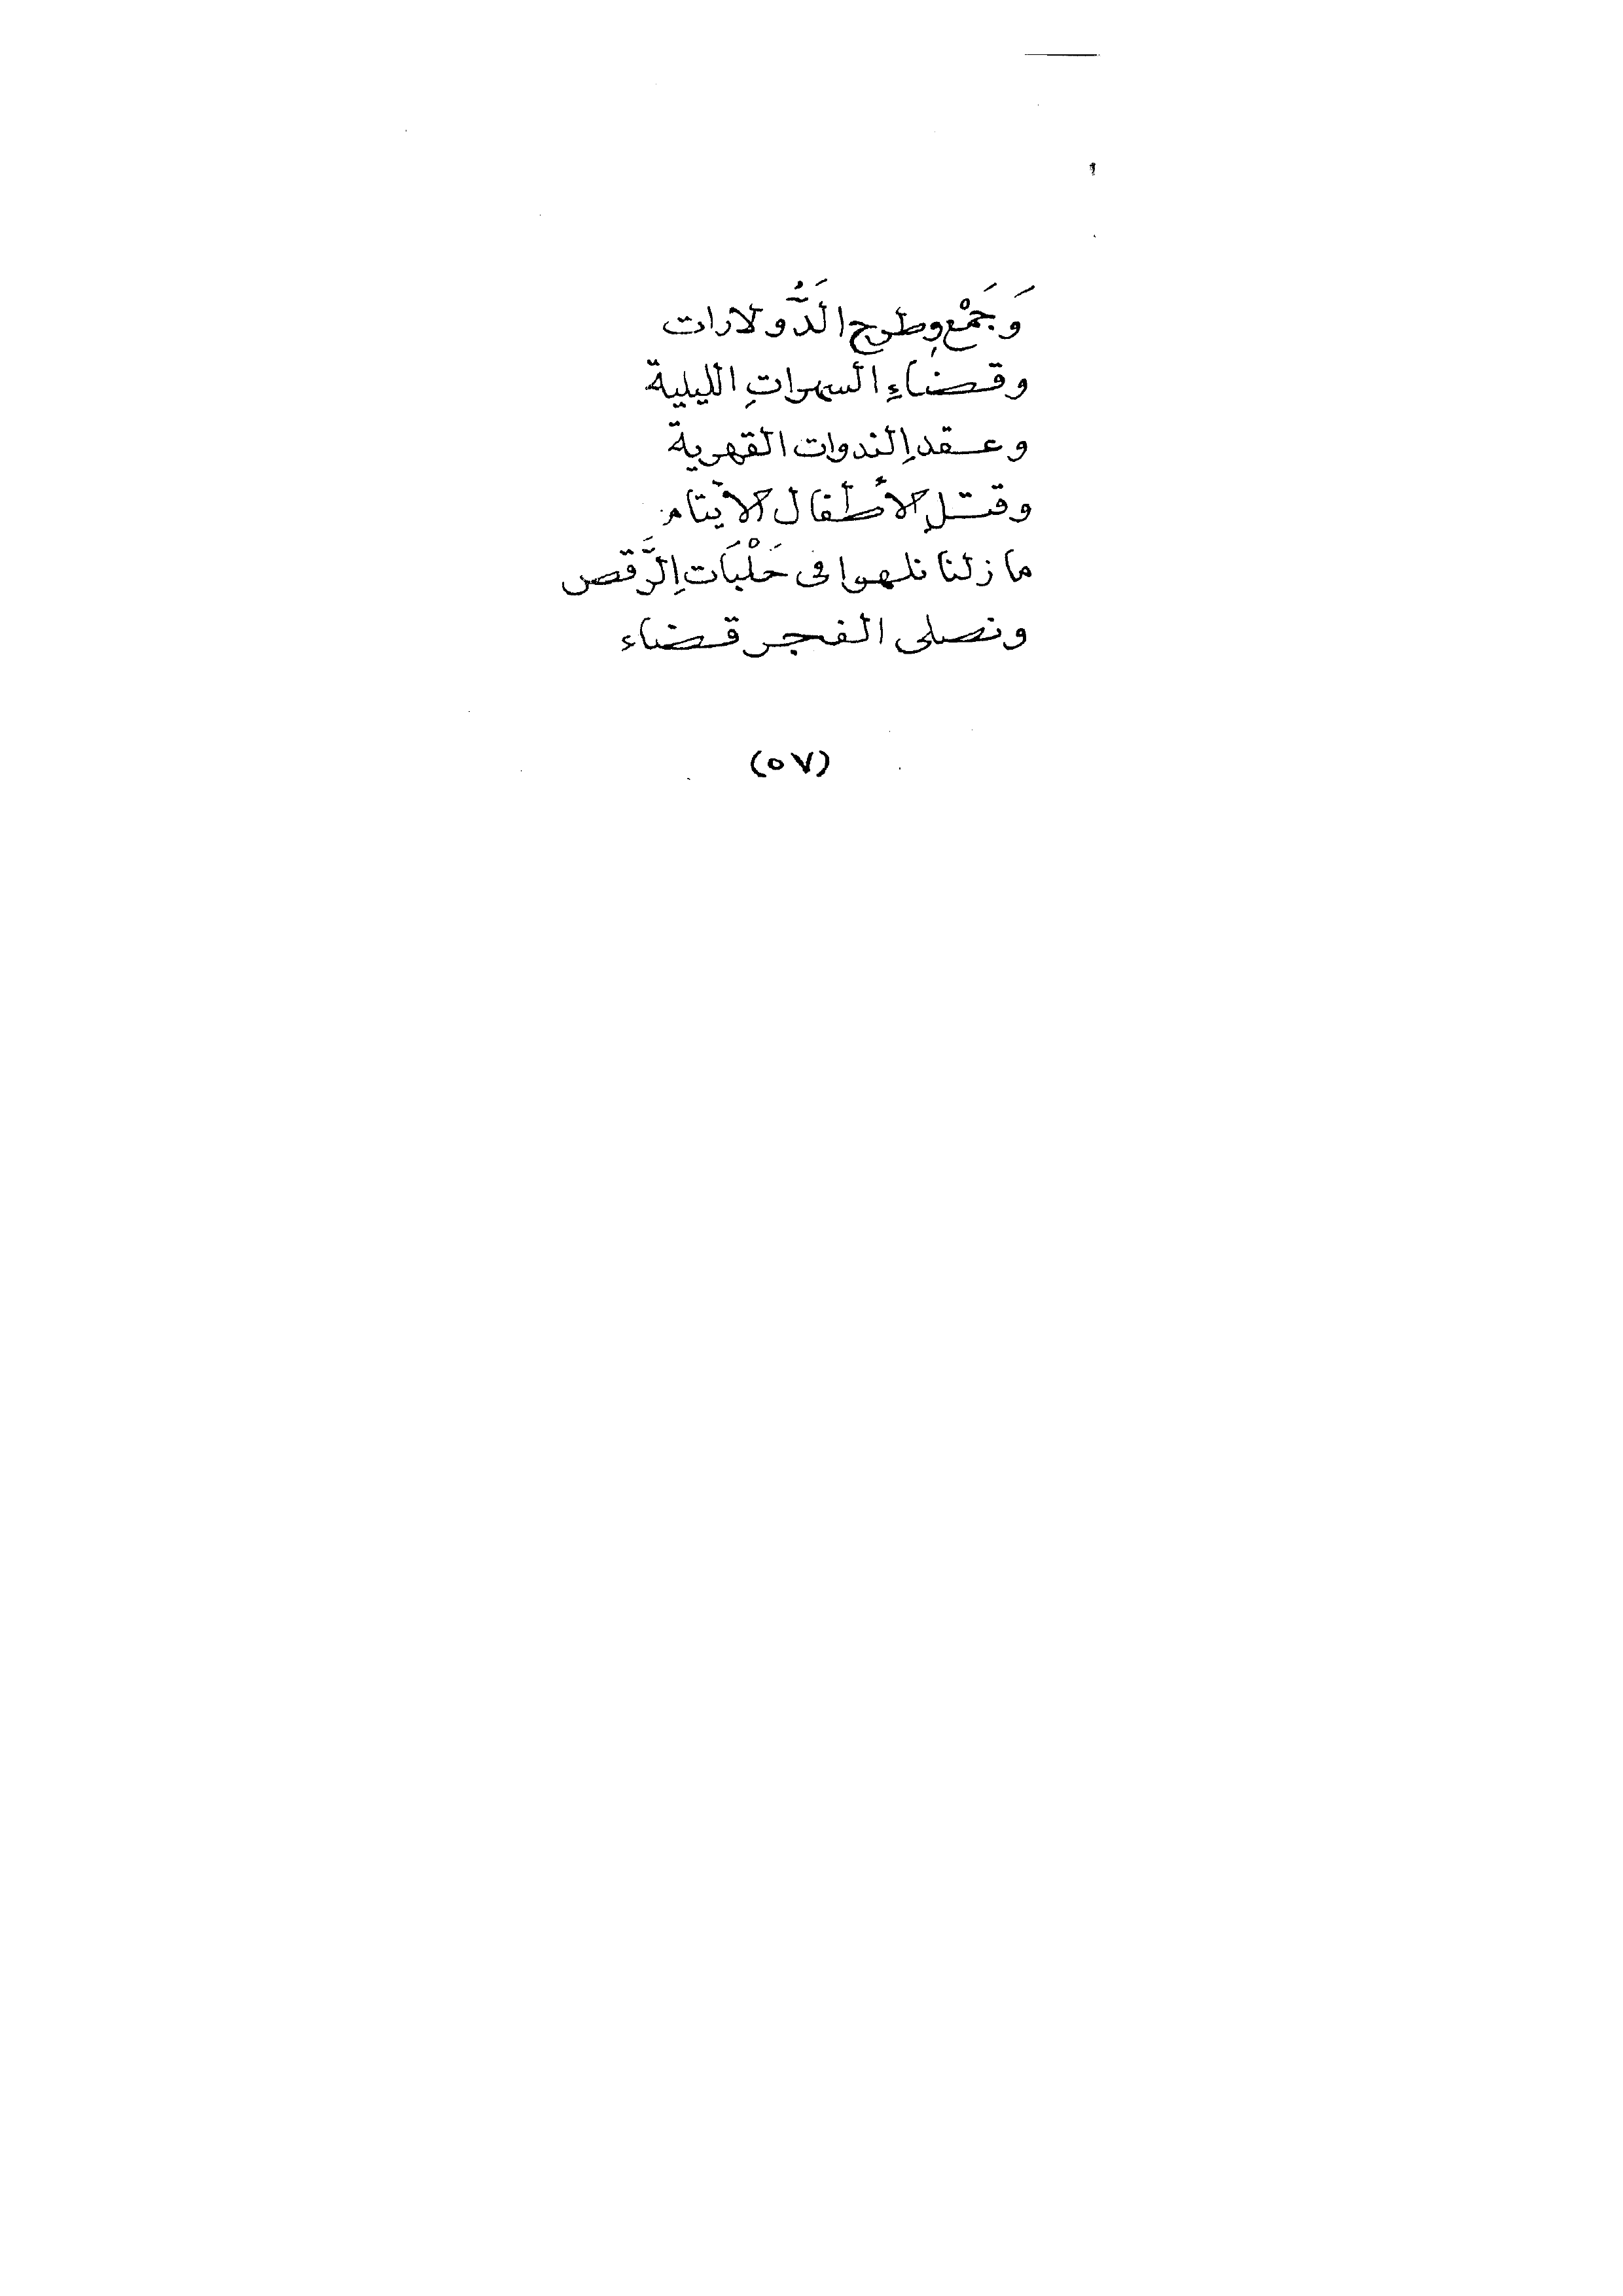 وَجَمْعِ وطرح الَدُّولارات
وقضاءِ السهراتِ الليلية
وعقدِ الندوات القهرية
وقتلِ الأُطفال الأيتام
ما زلنا نلهوا فى حَلْبَات الرَّقص
ونصلى الفجر قضاء
(٥٧)